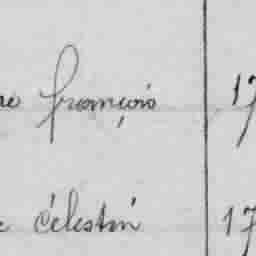 françois 17
célestin 17